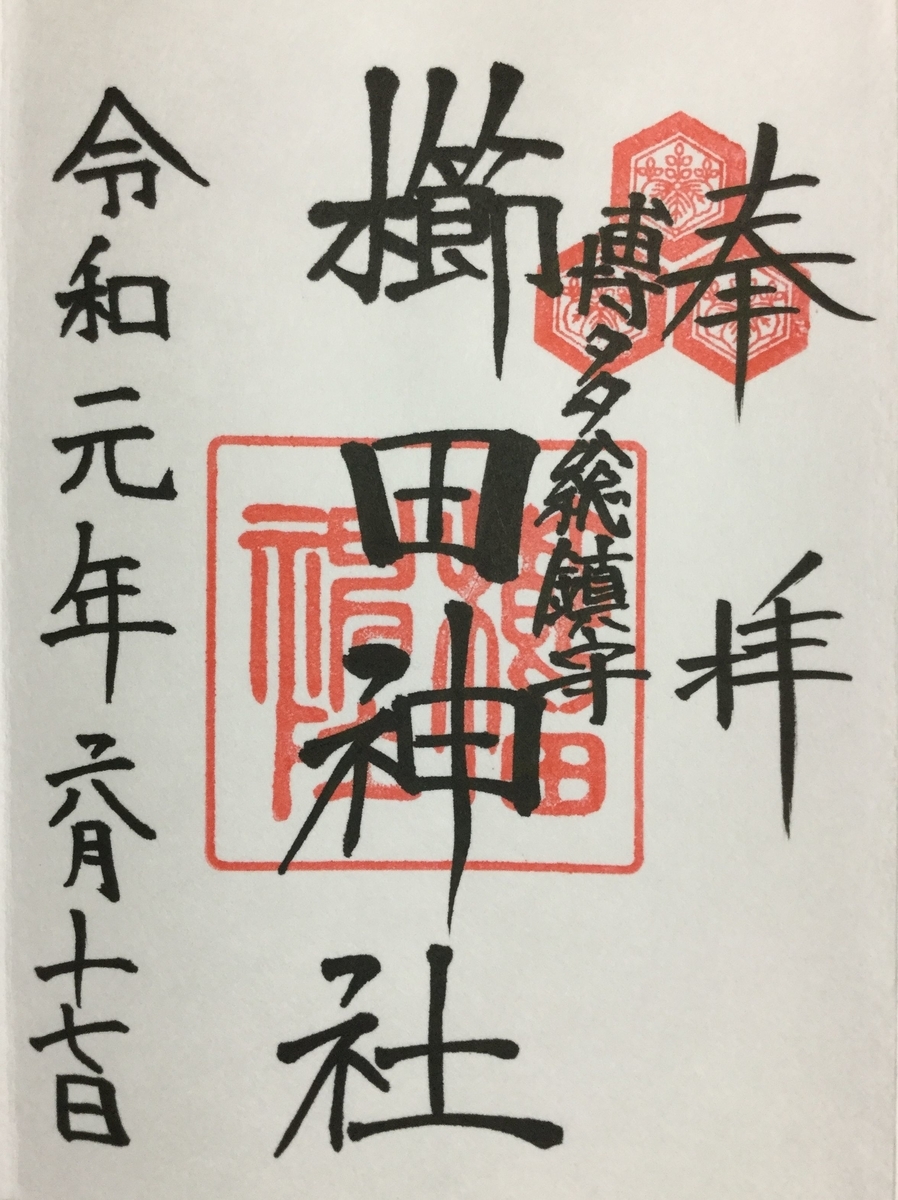 奉拝
博多総鎮守
櫛田神社
令和元年六月十七日